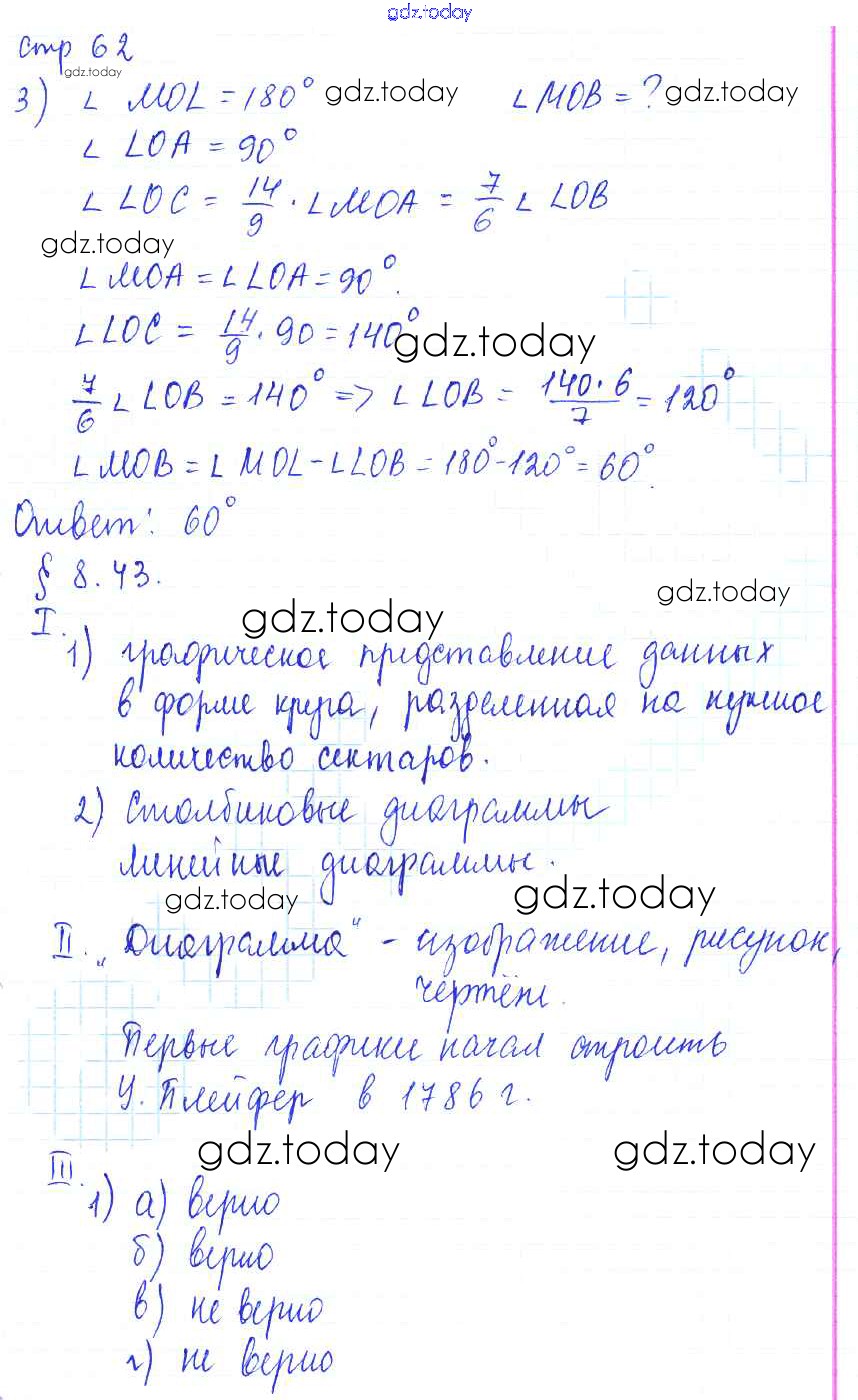 gdz.today
Стр 62
gdz.today
3) ∠ MOL = 180° gdz.today ∠ MOB = ? gdz.today
∠ LOA = 90°
∠ LOC = 14/9 · ∠ MOA = 7/6 ∠ LOB
gdz.today
∠ MOA = ∠ LOA = 90°.
∠ LOC = 14/9 · 90 = 140° gdz.today
7/6 ∠ LOB = 140° => ∠ LOB = 140·6/7 = 120°
∠ MOB = ∠ MOL - ∠ LOB = 180° - 120° = 60°.
Ответ: 60°
§ 8.43.
gdz.today
I. gdz.today
1) графическое представление данных
в форме круга, разделенная на нужное
количество сектаров.
2) Столбиковые диаграммы
линейные диаграммы.
gdz.today gdz.today
II. „Диаграмма" - изображение, рисунок,
чертёж.
Первые графики начал строить
У. Плейфер в 1786 г.
gdz.today gdz.today
III. 1) а) верно
б) верно
в) не верно
г) не верно